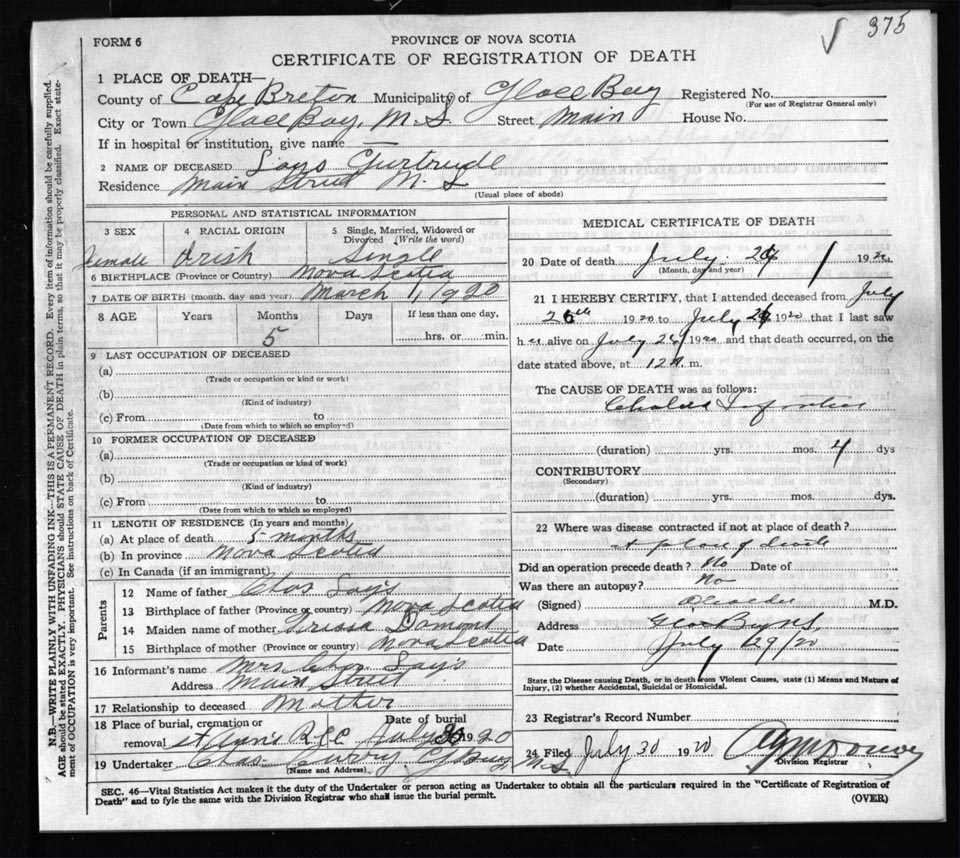 375
FORM 6
PROVINCE OF NOVA SCOTIA
CERTIFICATE OF REGISTRATION OF DEATH
N.B.—WRITE PLAINLY WITH UNFADING INK—THIS IS A PERMANENT RECORD. Every item of information should be carefully supplied.
AGE should be stated EXACTLY. PHYSICIANS should STATE CAUSE OF DEATH in plain terms, so that it may be properly classified. Exact state-
ment of OCCUPATION is very important. See instructions on back of Certificate.
1 PLACE OF DEATH—
County of Cape Breton Municipality of Glace Bay Registered No.
(For use of Registrar General only)
City or Town Glace Bay, N.S. Street Main House No.
If in hospital or institution, give name
2 NAME OF DECEASED Says Gurtrude
Residence Main Street N.S
(Usual place of abode)
PERSONAL AND STATISTICAL INFORMATION
3 SEX 4 RACIAL ORIGIN 5 Single, Married, Widowed or
Divorced (Write the word)
Female Irish Single
6 BIRTHPLACE (Province or Country) Nova Scotia
7 DATE OF BIRTH (month, day and year) March 1, 1920
8 AGE Years Months Days If less than one day,
5 hrs. or min.
9 LAST OCCUPATION OF DECEASED
(a)
(Trade or occupation or kind or work)
(b)
(Kind of industry)
(c) From to
(Date from which to which so employed)
10 FORMER OCCUPATION OF DECEASED
(a)
(Trade or occupation or kind of work)
(b)
(Kind of industry)
(c) From to
(Date from which to which so employed)
11 LENGTH OF RESIDENCE (In years and months)
(a) At place of death 5 months
(b) In province Nova Scotia
(c) In Canada (if an immigrant)
Parents
12 Name of father Chas Says
13 Birthplace of father (Province or country) Nova Scotia
14 Maiden name of mother
15 Birthplace of mother (Province or country) Nova Scotia
16 Informant's name Mrs Chas Say's
Address Main Street
17 Relationship to deceased Mother
18 Place of burial, cremation or Date of burial
removal St Ann's July 30 1920
19 Undertaker Chas
(Name and Address)
MEDICAL CERTIFICATE OF DEATH
20 Date of death July 1920
(Month, day and year)
21 I HEREBY CERTIFY, that I attended deceased from July
26th 1920 to July 1920 that I last saw
h er alive on July 1920 and that death occurred, on the
date stated above, at 12 m.
The CAUSE OF DEATH was as follows:
Cholera Infantum
(duration) yrs. mos. 4 dys
CONTRIBUTORY
(Secondary)
(duration) yrs. mos. dys.
22 Where was disease contracted if not at place of death?
at place of death
Did an operation precede death? No Date of
Was there an autopsy? No
(Signed) M.D.
Address Glace Bay NS
Date July 29/20
State the Disease causing Death, or in death from Violent Causes, state (1) Means and Nature of
Injury, (2) whether Accidental, Suicidal or Homicidal.
23 Registrar's Record Number
24 Filed July 30 1920
Division Registrar
SEC. 46—Vital Statistics Act makes it the duty of the Undertaker or person acting as Undertaker to obtain all the particulars required in the "Certificate of Registration of
Death" and to fyle the same with the Division Registrar who shall issue the burial permit. (OVER)